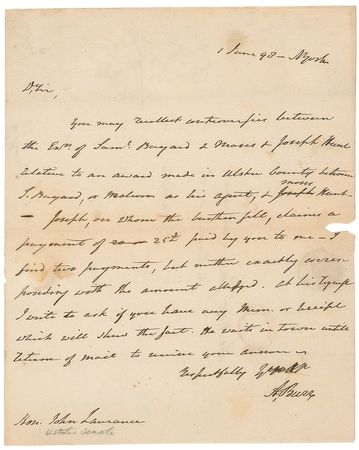 1 June 98 — NYork
D'Sir,
You may recollect controversies between
the Exrs. of Saml. Bayard & Moses & Joseph Hunt
relative to an award made in Ulster County between
S. Bayard, or as his agent, & Joseph Hunt
moses
— Joseph, on Whom the burthen fell, claims a
payment of 25£ paid by you to me — I
find two payments, but neither exactly corres-
ponding with the amount alledged. At his request
I write to ask if you have any Mem. or receipt
which will shew the fact. He waits in town until
return of mail to receive your answer
respectfully Yours
A. Burr
Hon. John Laurance
U States Senate